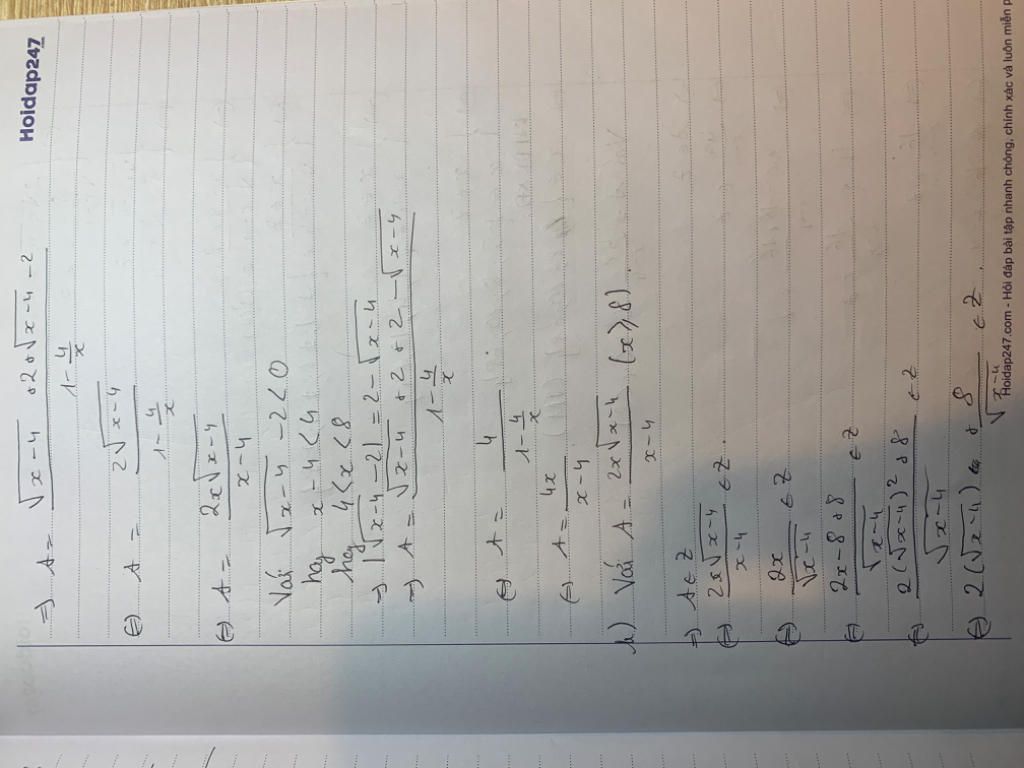 Hoidap247
=> A = \frac{\sqrt{x-4} + 2 + \sqrt{x-4} - 2}{1 - \frac{4}{x}}
(=) A = \frac{2\sqrt{x-4}}{1 - \frac{4}{x}}
(=) A = \frac{2x\sqrt{x-4}}{x-4}
Với \sqrt{x-4} - 2 < 0
hay x - 4 < 4
hay 4 < x < 8
=> |\sqrt{x-4} - 2| = 2 - \sqrt{x-4}
=> A = \frac{\sqrt{x-4} + 2 + 2 - \sqrt{x-4}}{1 - \frac{4}{x}}
(=) A = \frac{4}{1 - \frac{4}{x}}
(=) A = \frac{4x}{x-4}
b) Với A = \frac{2x\sqrt{x-4}}{x-4} (x ≥ 8).
=> A ∈ Z
(=) \frac{2x\sqrt{x-4}}{x-4} ∈ Z.
(=) \frac{2x}{\sqrt{x-4}} ∈ Z
(=) \frac{2x - 8 + 8}{\sqrt{x-4}} ∈ Z
(=) \frac{2(\sqrt{x-4})^2 + 8}{\sqrt{x-4}} ∈ Z
(=) 2(\sqrt{x-4}) + \frac{8}{\sqrt{x-4}} ∈ Z.
Hoidap247.com - Hỏi đáp bài tập nhanh chóng, chính xác và luôn miễn